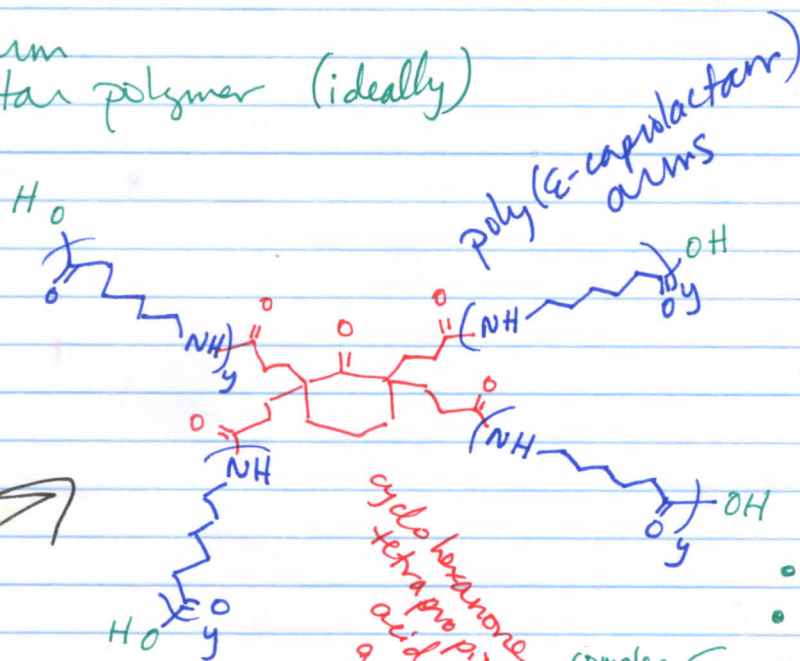 tar polymer (ideally)
poly(ε-caprolactam)
arms
HO
O
NH
y
O
O
O
NH
OH
O
y
O
NH
O
NH
OH
O
y
O
y
HO
cyclohexanone
tetrapropi
acid